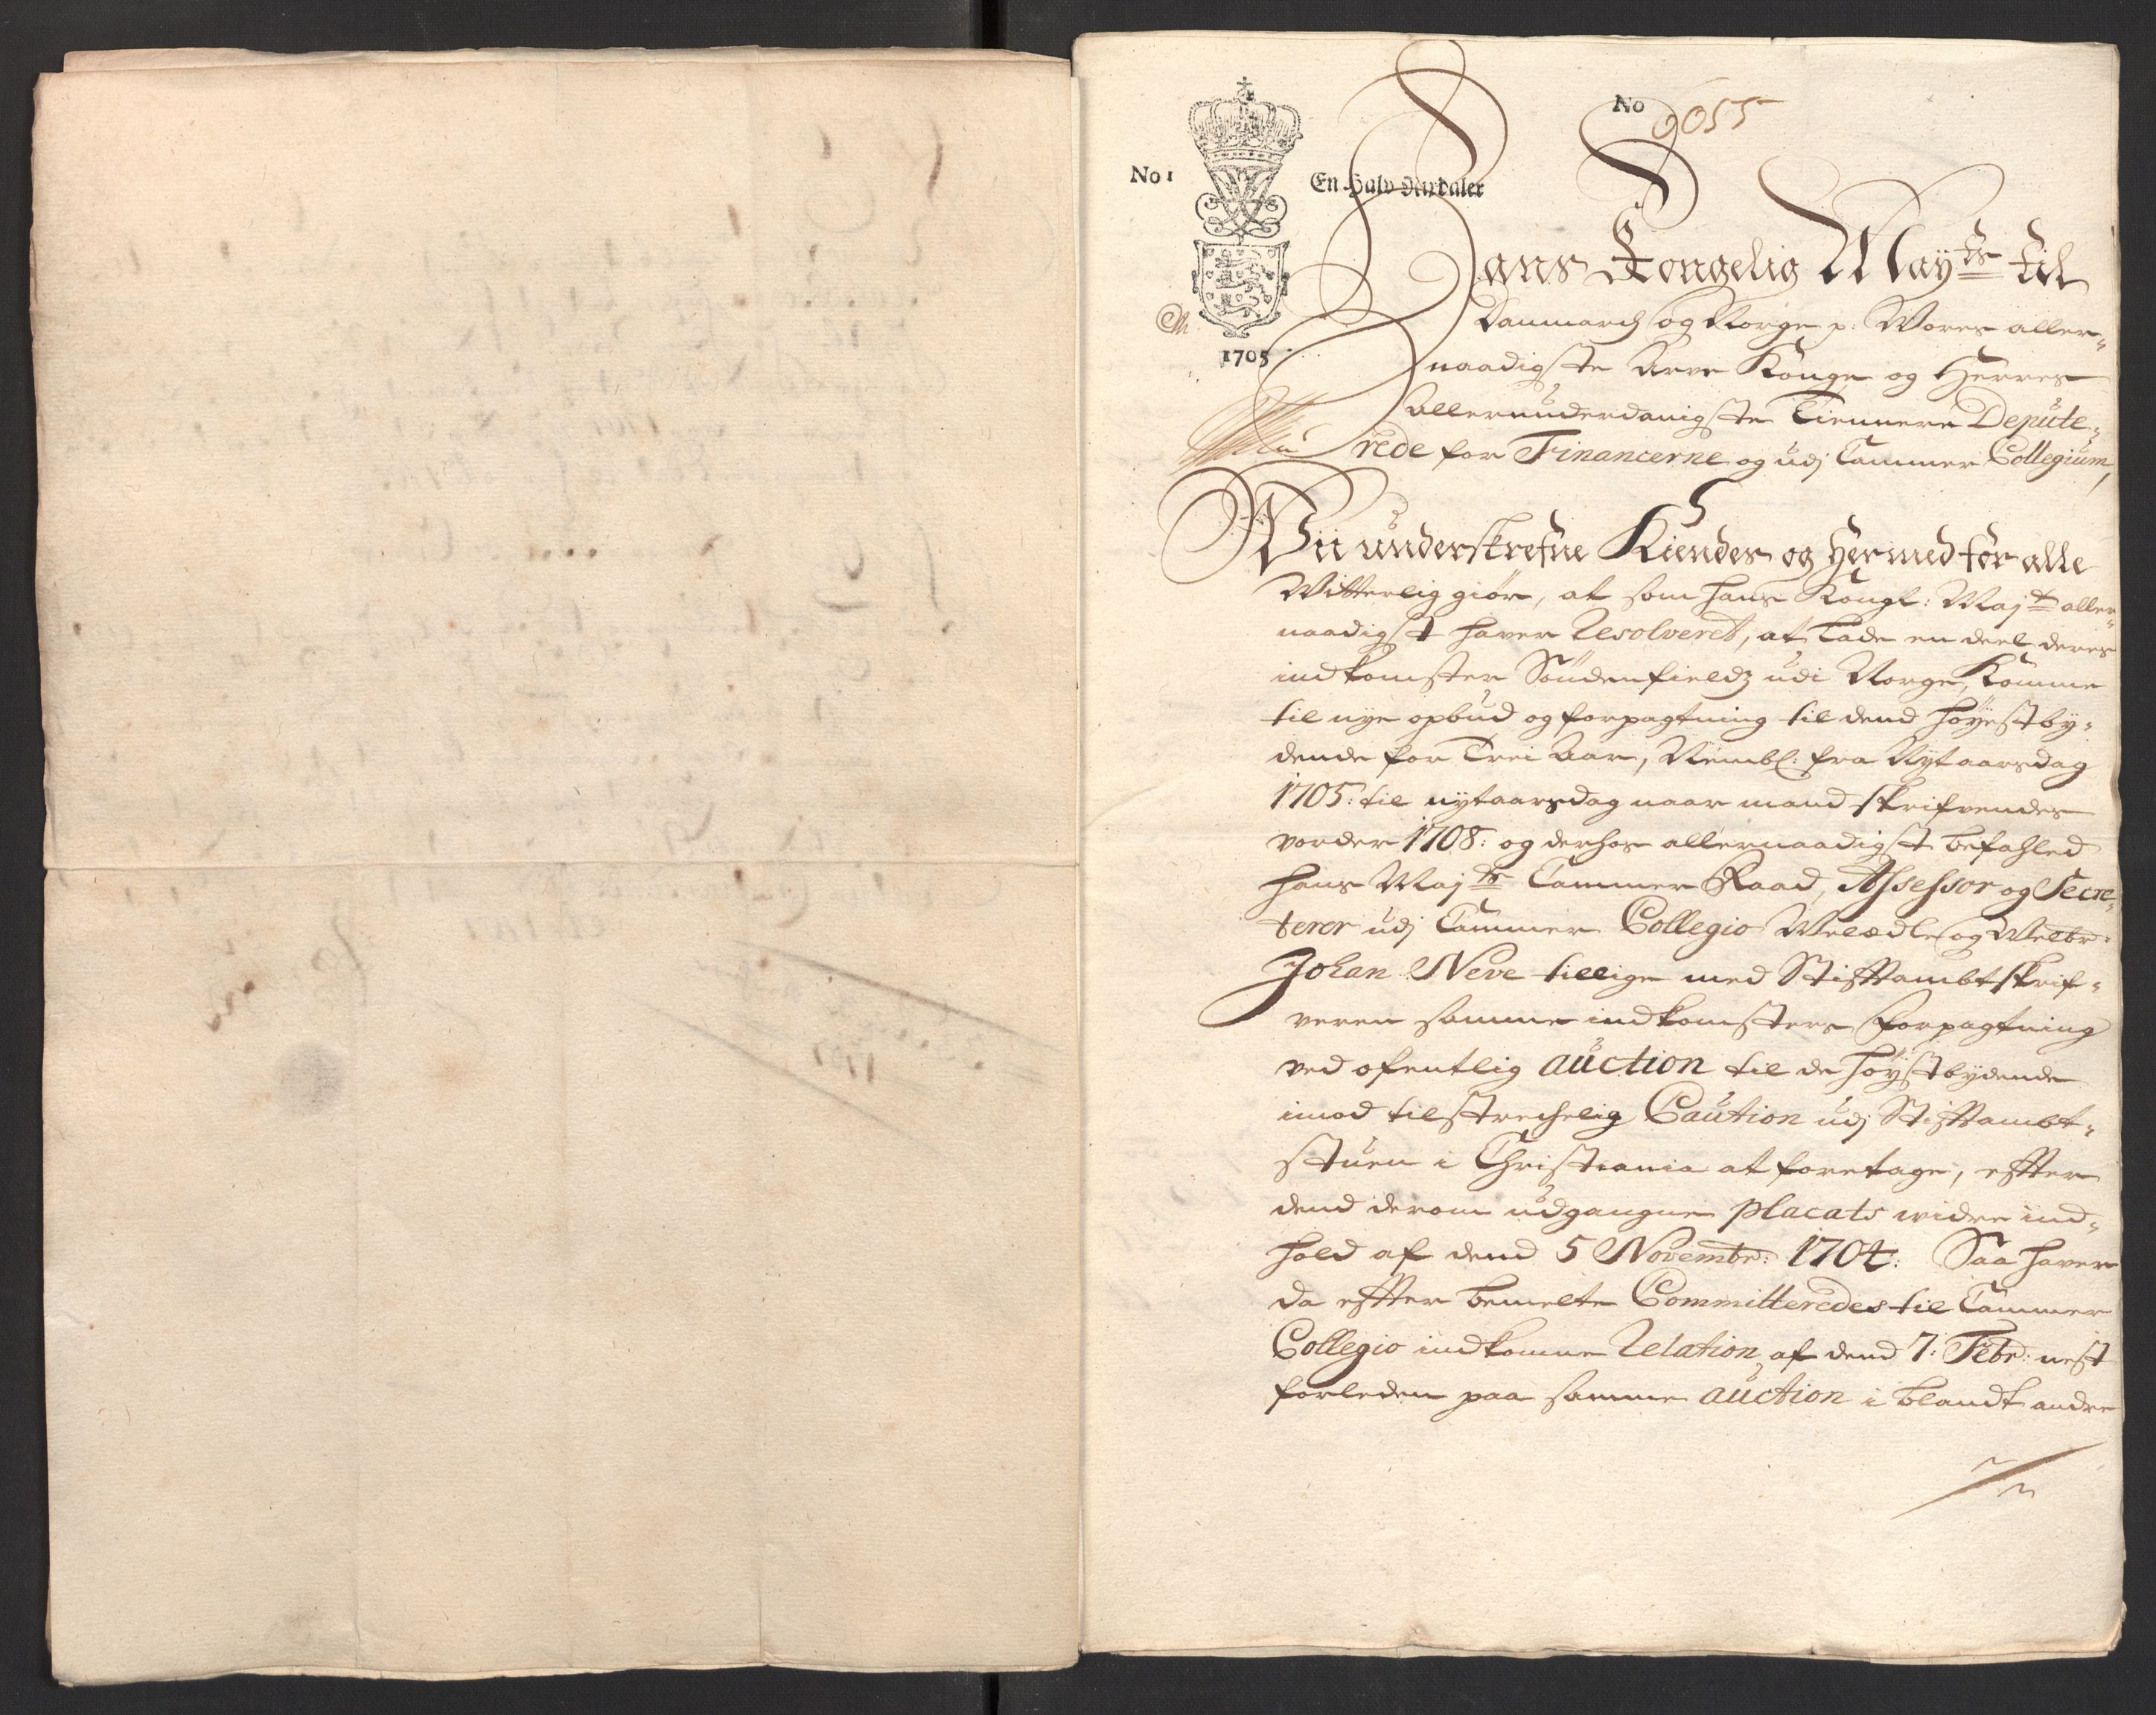 No 9055
No 1
En Halv Rixdaler
1705
Hans Kongelig Mayts til
Danmarch og Norge p: Vores aller-
naadigste Arve Konge og Herres
Allerunderdanigste Tiennere Depute-
rede for Financerne og udj Cammer Collegium,
Wii underskrefne Kiendes og Hermed for alle
Witterlig giør, at som Hans Kongl: Majt aller-
naadigst haver Resolveret, at lade en deel deres
indkomster Søndenfieldz udi Norge, Komme
til nye opbud og forpagtning til dend høyestby-
dende for Trei Aar, Nembl: fra Nytaarsdag
1705: til nytaarsdag naar mand skrifvendes
vorder 1708: og derhos allernaadigst befahled
Hans Majts Cammer Raad, Assessor og Secre-
terer udj Cammer Collegio Velædle og Velbr:
Johan Neve tillige med Stiftambtskrif-
veren samme indkomsters forpagtning
ved ofentlig auction til de høystbydende
imod tilstrechelig Caution udj Stiftambt-
stuen i Christiania at foretage, efter
dend derom udgangne placats widre ind-
hold af dend 5 Novembr: 1704: Saa haver
da efter bemelte Committeredes til Cammer
Collegio indkomne Relation af dend 7: Febr: nest
forleden paa samme auction i blandt andre